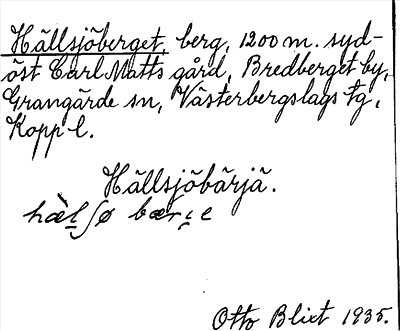 Hällsjöberget, berg, 1200 m. syd-
öst Carl Matts gård, Bredberget by,
Grangärde sn, Västerbergslags tg,
Kopp l.
Hällsjöbärjä.
hæ̀l̠ʃø bær̠ı̠e
Otto Blixt 1935.